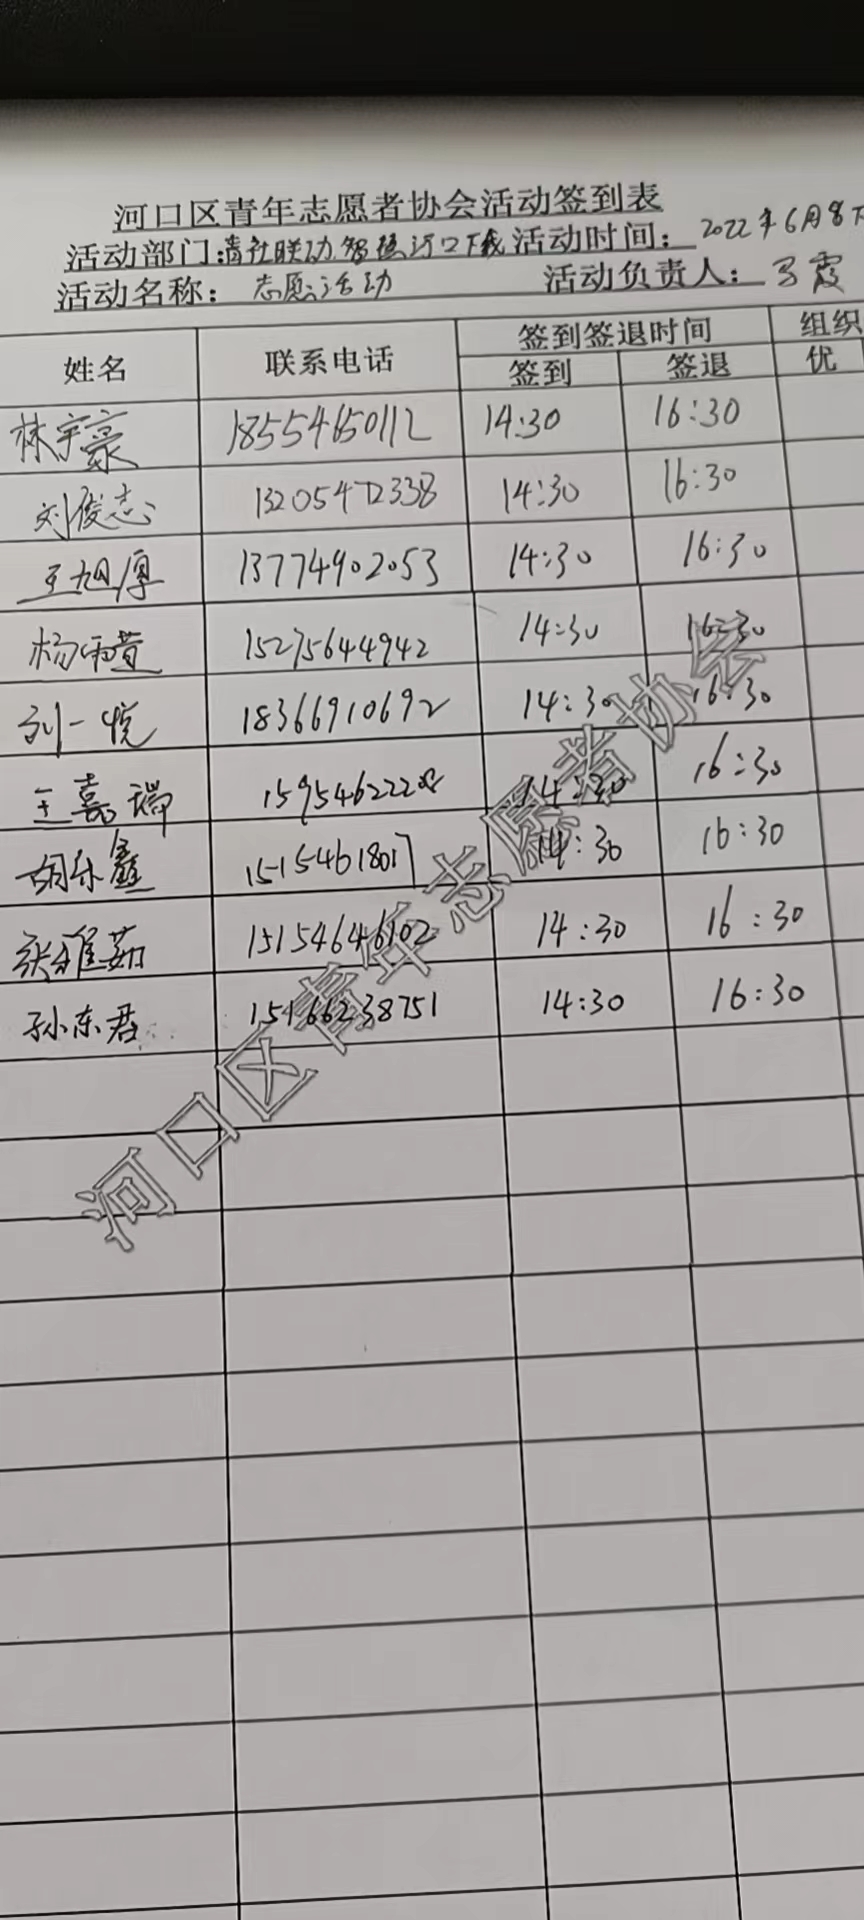 河口区青年志愿者协会活动签到表
活动部门:青社联动.智慧河口下载 活动时间: 2022年6月8下
活动名称: 志愿活动 活动负责人:
姓名 联系电话 签到签退时间 组织
签到 签退 优
林宇豪 18554650112 14:30 16:30
刘俊志 13205472338 14:30 16:30
王旭厚 13774902053 14:30 16:30
杨雨萱 15275644942 14:30 16:30
刘一悦 18366910692 14:30 16:30
王嘉瑞 14:30 16:30
胡乐鑫 15154618017 14:30 16:30
张雅茹 15154646102 14:30 16:30
孙东君 14:30 16:30
河口区青年志愿者协会